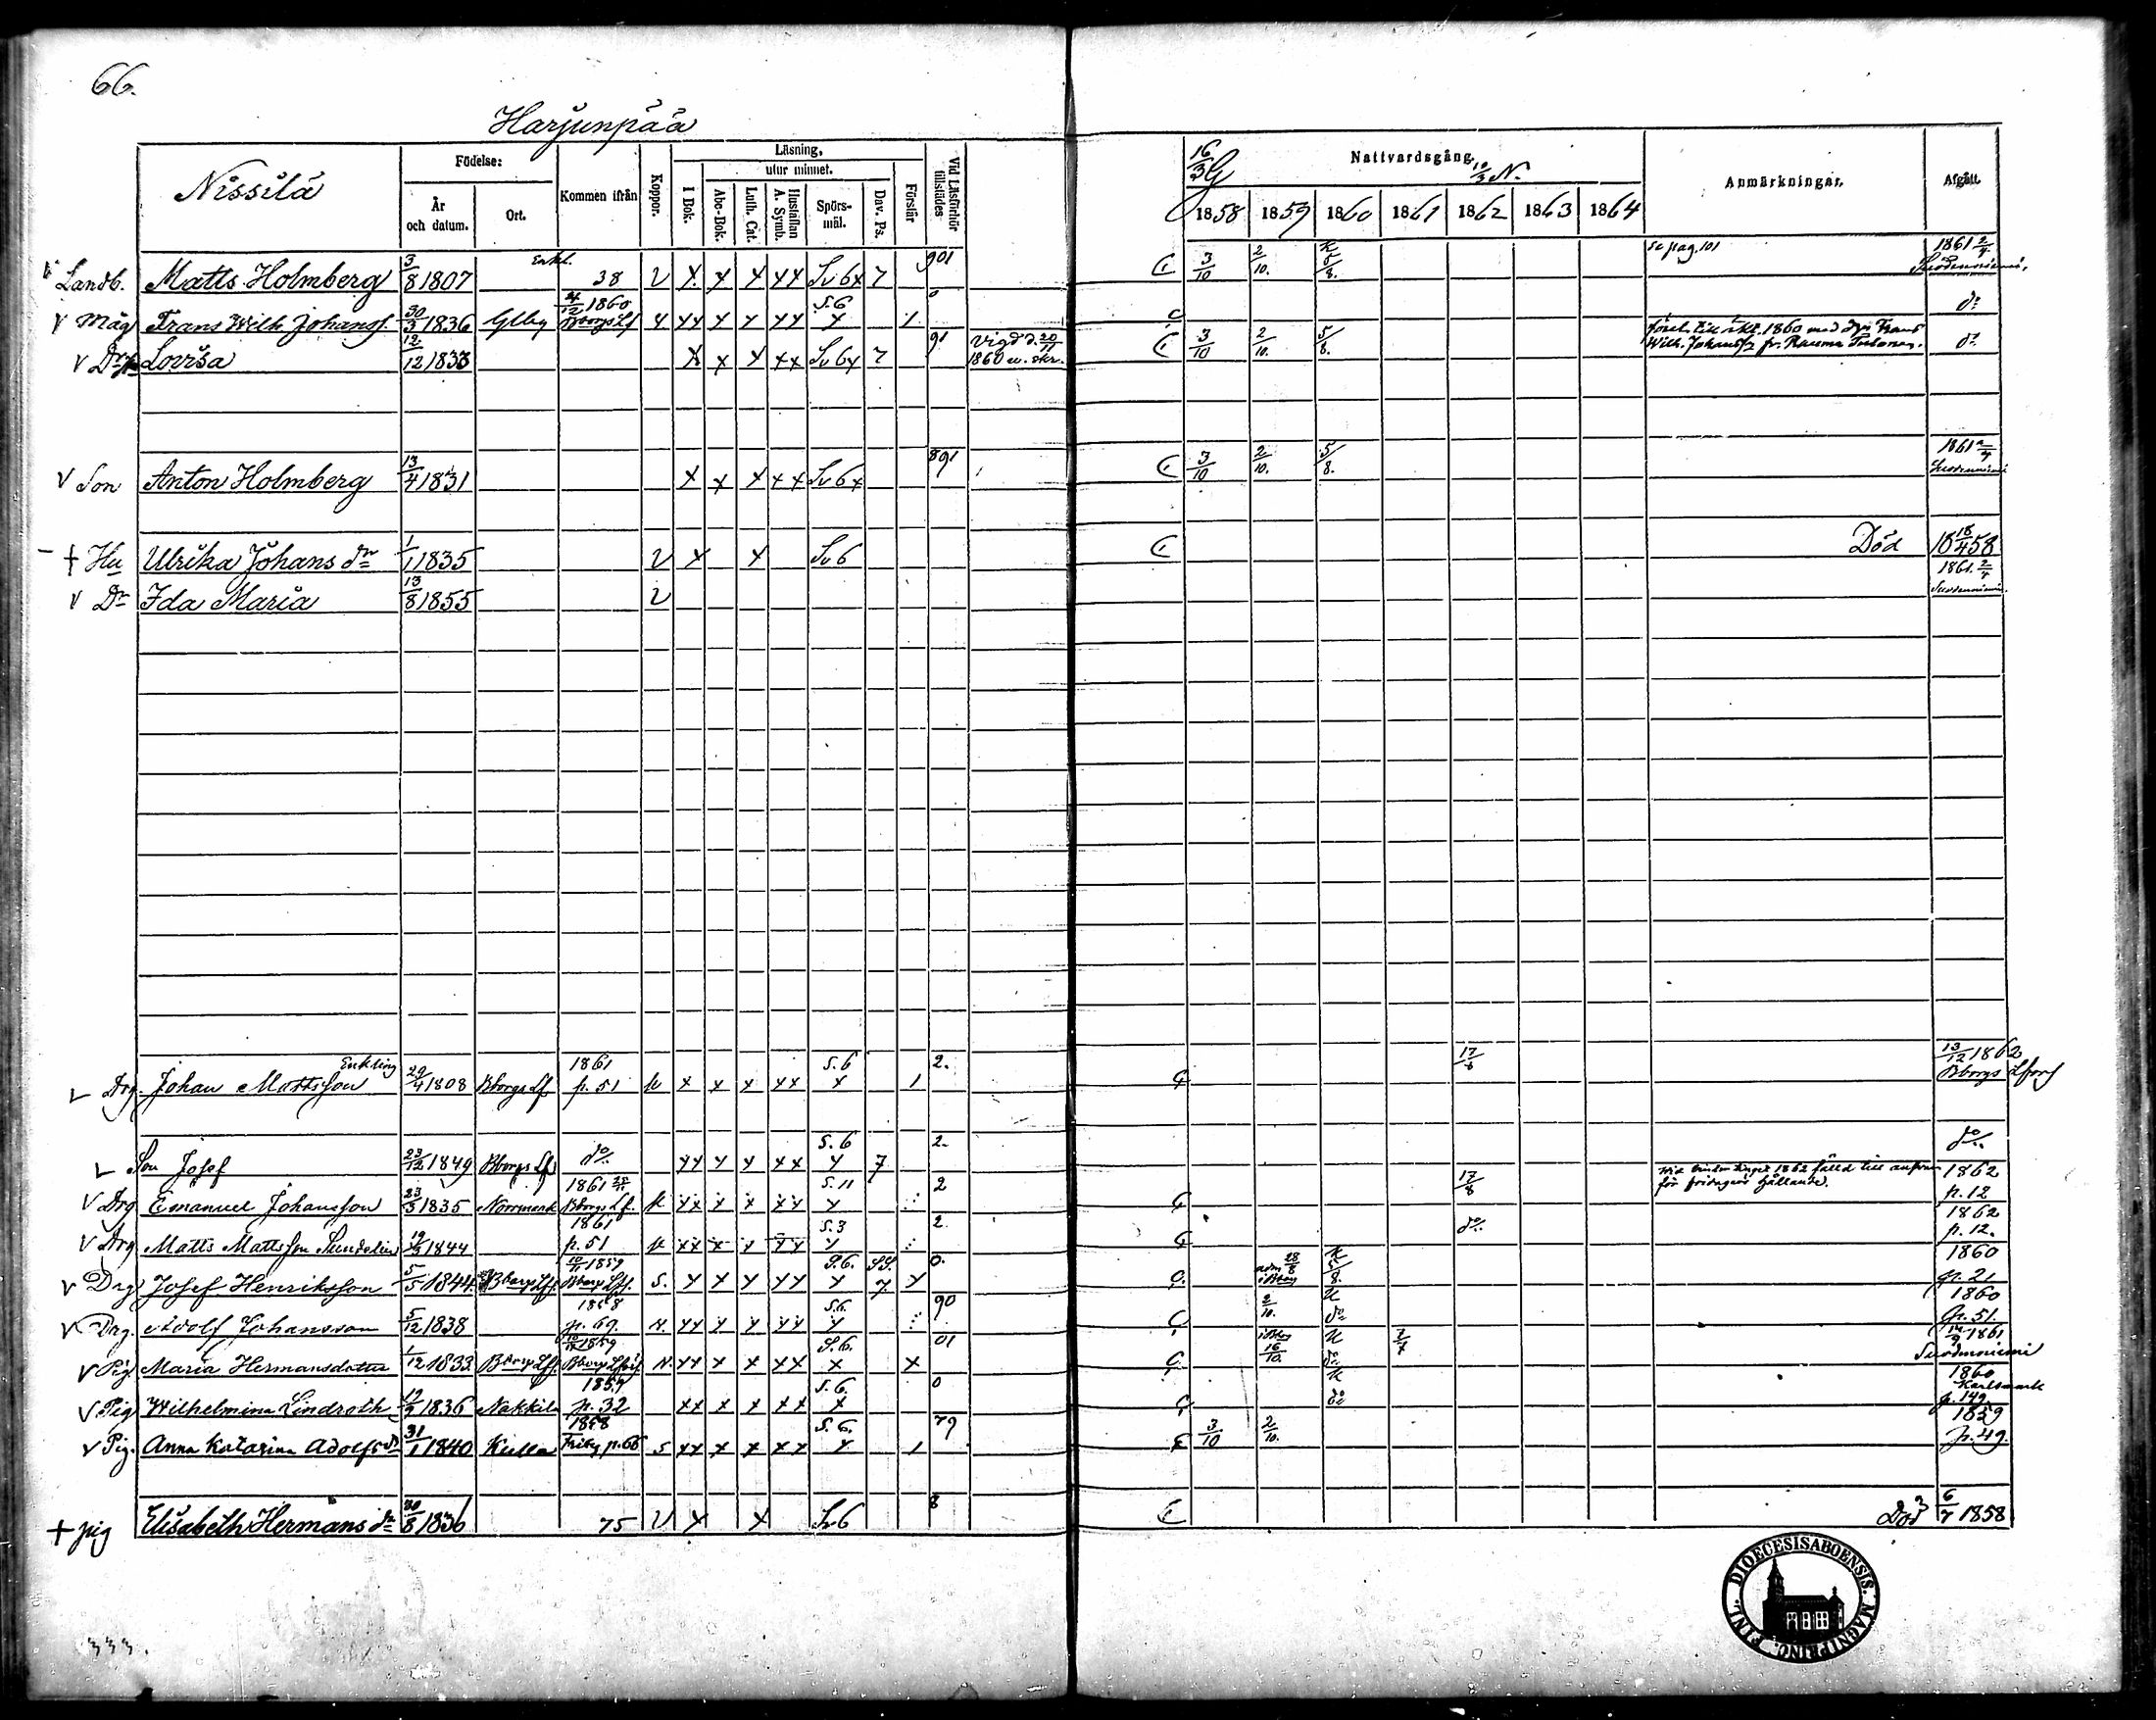 66.
Harjunpää
Nissilä
Födelse:
År och datum.
Ort.
Kommen ifrån
Koppor.
Läsning,
I Bok.
utur minnet.
Abc-Bok.
Luth. Cat.
Hustaflan A. Symb.
Spörs-mål.
Dav. Ps.
Förstår
Vid Läsförhör tillstädes
16/3 Nattvardsgång. 10/3 N.
1858 1859 1860 1861 1862 1863 1864
Anmärkningar.
Afgått.
Landb. Matts Holmberg Enkl. 3/8 1807 38 v x x x xx Sv 6x 7 901 C 3/10 2/10. 5/8. se pag. 101 1861 2/4 Suodenniemi.
Måg Frans Wilh. Johanss. 30/3 1836 Ulby 4/12 1860 Bborgs Lf xx x x xx S.6 x 1 0 C do
Dr Lovisa 12/12 1833 x x x xx Sv 6x 7 91 Vigd d. 20/11 1860 C 3/10 2/10. 5/8. 1860 med Frans Wilh. Johanss. fr. Rauma do
Son Anton Holmberg 13/4 1831 x x x xx Sv 6x 891 C 3/10 2/10. 5/8. 1861 2/4 Suodenniemi
+ Hu Ulrika Johans dr 1/1 1835 v x x Sv 6 C Död 18 18/4 58
Dr Ida Maria 13/8 1855 v 1861. 2/4 Suodenniemi.
Drg. Johan Mattsson Enkling 29/4 1808 Bborgs Lf 1861 p. 51 x x x xx S.6 x 1 2. C 17/8 13/12 1862 Bborgs Lfors
Son Josef 23/12 1849 Bborgs Lf do xx x x xx S.6 x 7 2. do
Drg Emanuel Johansson 23/3 1835 Norrmark 1861 Bborgs Lf. xx x x xx S.11 x 2 C 17/8 1862 fälld till 1862 p. 12
Drg Matts Mattsson Sundelin 1844 1861 p. 51 xx x x xx S.3 x 2 C do 1862 p. 12.
Drg Josef Henriksson 5/5 1844 Bborg Lf. 1859 Bborg Lf. S. x x x xx S.6. x 7. x 0. C. 28/8 5/8. 1860 p. 21
Drg. Adolf Johansson 5/12 1838 1858 p. 69. xx x x xx S.6. x 90 C 2/10. do 1860 p. 51.
Pig. Maria Hermansdotter 1/12 1833 Bborg Lf. 1859 Bborg Lfors xx x x xx S.6. x x 01 C. 16/10. do 1861 Suodenniemi
Pig Wilhelmina Lindroth 1836 Nakkila 1859 p. 32 xx x x xx S.6. x 0 C do 1860 Karlsmark p. 149.
Pig. Anna Katarina Adolfs dr 31/1 1840 Kulla 1858 Friby p. 66 S xx x x xx S.6. x 1 79 C 3/10 2/10. 1859 p. 49.
+ pig Elisabeth Hermans dr 30/8 1836 75 v x x Sv 6 8 C Död 6/7 1858
333.
DIOECESIS ABOENSIS. MAGNI PRINC. FINL.